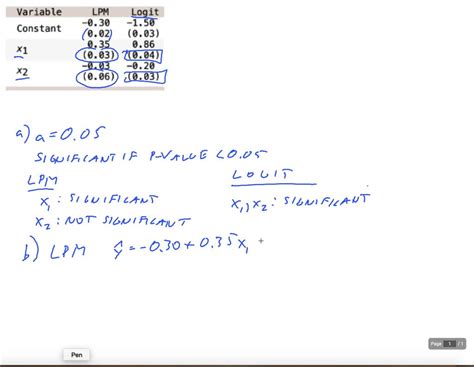 Variable LPM Logit
Constant -0.30 -1.50
(0.02) (0.03)
x1 0.35 0.86
(0.03) (0.04)
x2 -0.03 -0.20
(0.06) (0.03)
a) a = 0.05
SIGNIFICANT IF P-VALUE < 0.05
LPM LOGIT
x₁ : SIGNIFICANT x₁, x₂ : SIGNIFICANT
x₂ : NOT SIGNIFICANT
b) LPM ŷ = -0.30 + 0.35x₁
Page 1 / 1
Pen